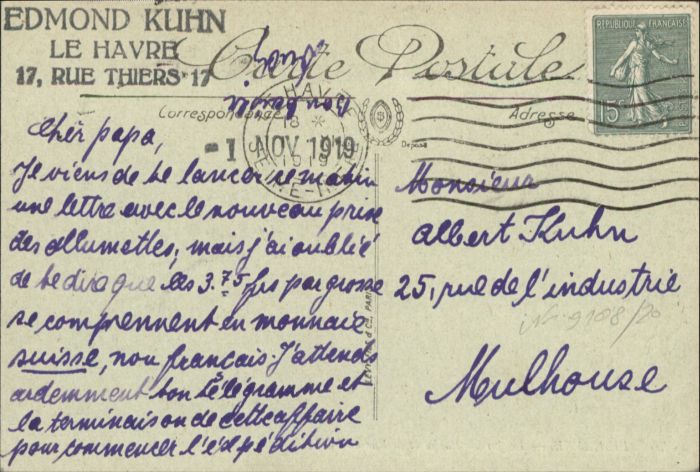 EDMOND KUHN
LE HAVRE
17, RUE THIERS 17
Carte Postale
Correspondance
Adresse
RÉPUBLIQUE FRANÇAISE
15c
HAVRE
18 *
-1 NOV 1919
1919
SEINE-
Cher papa,
Je viens de te lancer ce matin
une lettre avec le nouveau prix
des allumettes, mais j'ai oublié
de te dire que les 3.75 frs par grosse
se comprennent en monnaie
suisse, non français. J'attends
ardemment ton télégramme et
la terminaison de cette affaire
pour commencer l'expédition
Monsieur
Albert Kuhn
25, rue de l'industrie
Mulhouse